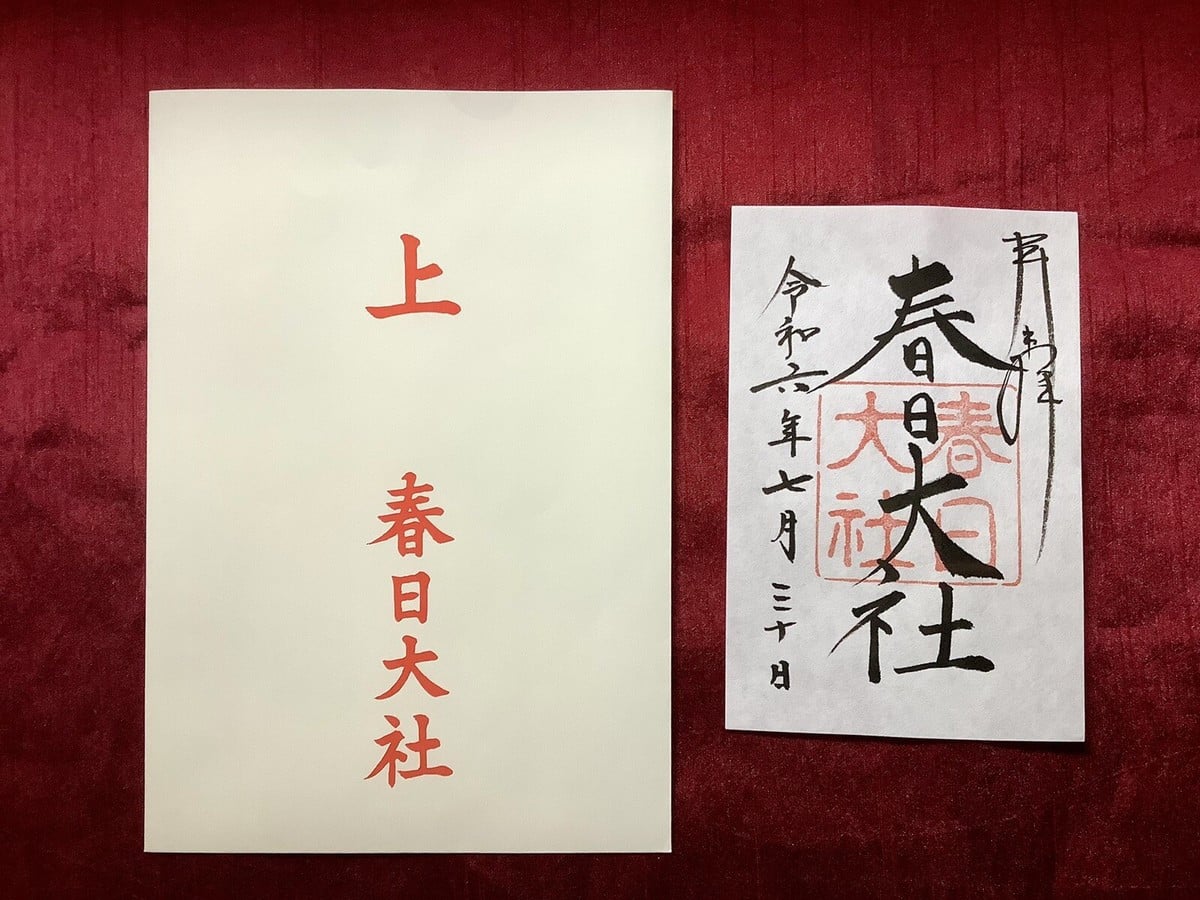 上 春日大社
春日大社
春日
大社
令和六年七月三十日